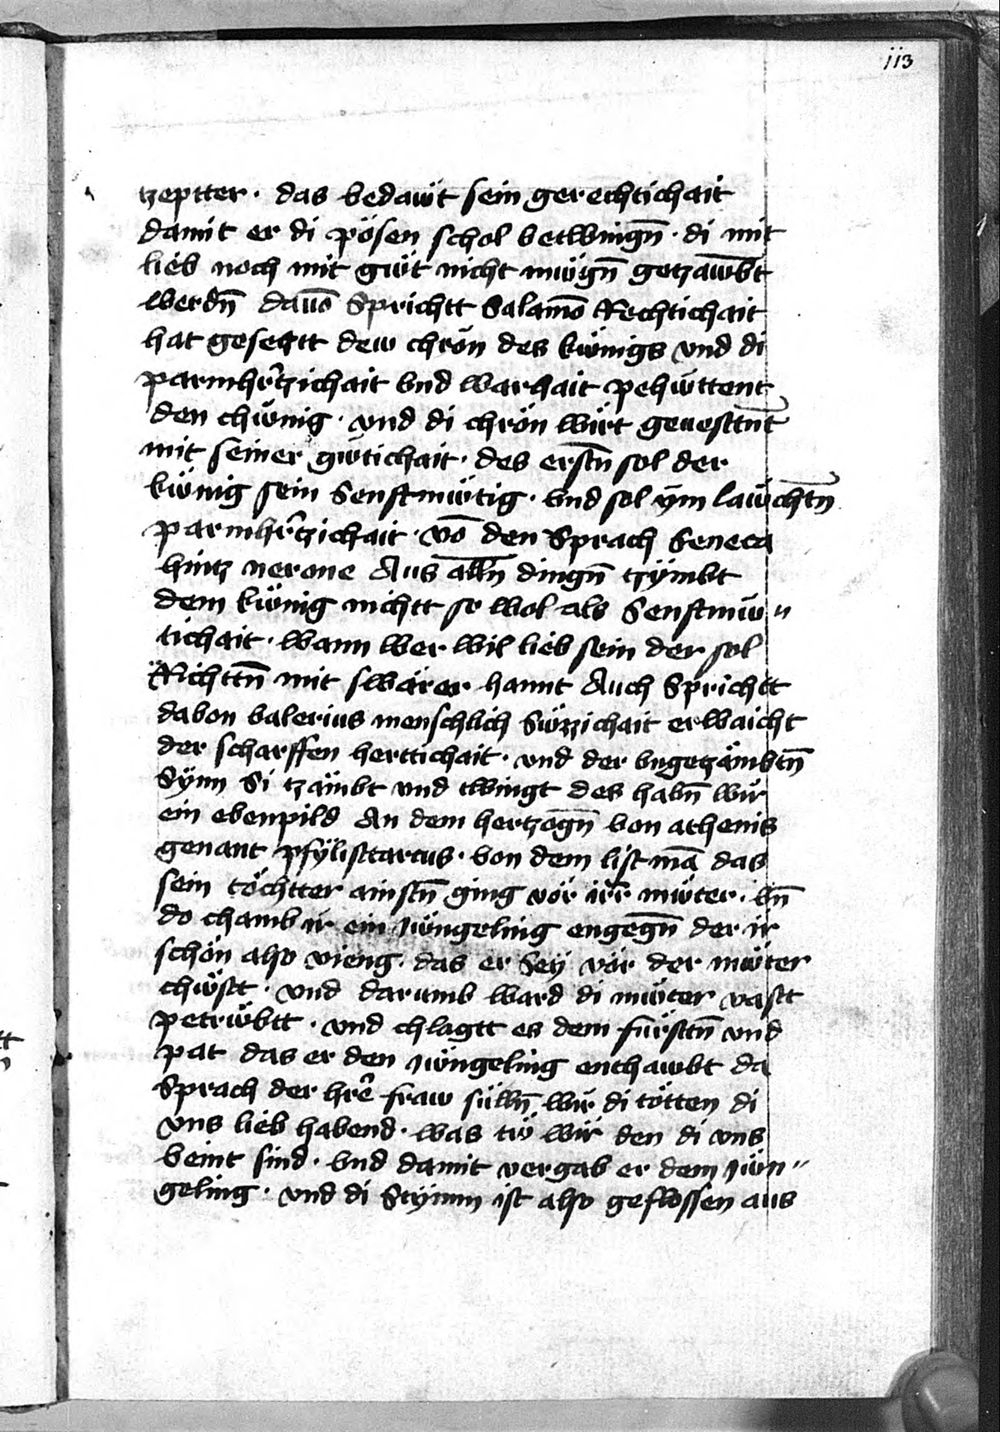 113
tzeptter · das bedawt sein gerechtichait
damit er di pösen schol betwingn̄ · di mit
lieb noch mit gwt nicht mügn̄ getzawbt
werdn̄ dauō Sprichtt Salamō Rechtichait
hat gesectt dew chrön des kwnigs vnd di
parmhr̄tzichait vnd warhait pehüttent
den chwnig · vnd di chrön wirt geuesttnt
mit seiner gwtichait · des erstn̄ sol der
kwnig sein Senftmwtig · vnd sol ym lawchtn̄
parmhr̄tzichait · vō den Sprach Seneca
hintz nerone Aus alln̄ dingn̄ tzymbt
dem kwnig nichtt so wol als Senftmw〃
tichait · wann wer wil lieb sein der sol
Richttn̄ mit swärer hannt Auch Sprichtt
dabon balerius menschlich Swzzichait erwaicht
der scharffen herttichait · vnd der vngetzämbtn̄
Synn Si tzämbt vnd twingt des habn̄ wir
ein ebenpild An dem hertzogn̄ von athenis
genant pfylisttarcus · von dem list mā das
sein töchtter ainstn̄ ging vor irr̄ mwter · vn̄
do chamb ir ein jwngeling engegn̄ der ir
schön also vieng · das er Sey vor der mwter
chwstt · vnd darumb ward di mwter vastt
petrwbtt · vnd chlagtt es dem fürsttn̄ vnd
pat das er den jwngeling enthawbt da
Sprach der hrē fraw sülln̄ wir di tötten di
vns lieb habend · was tw wir den di vns
veint sind · vnd damit vergab er dem jwn〃
geling · vnd di Stymm ist also geflossen aus